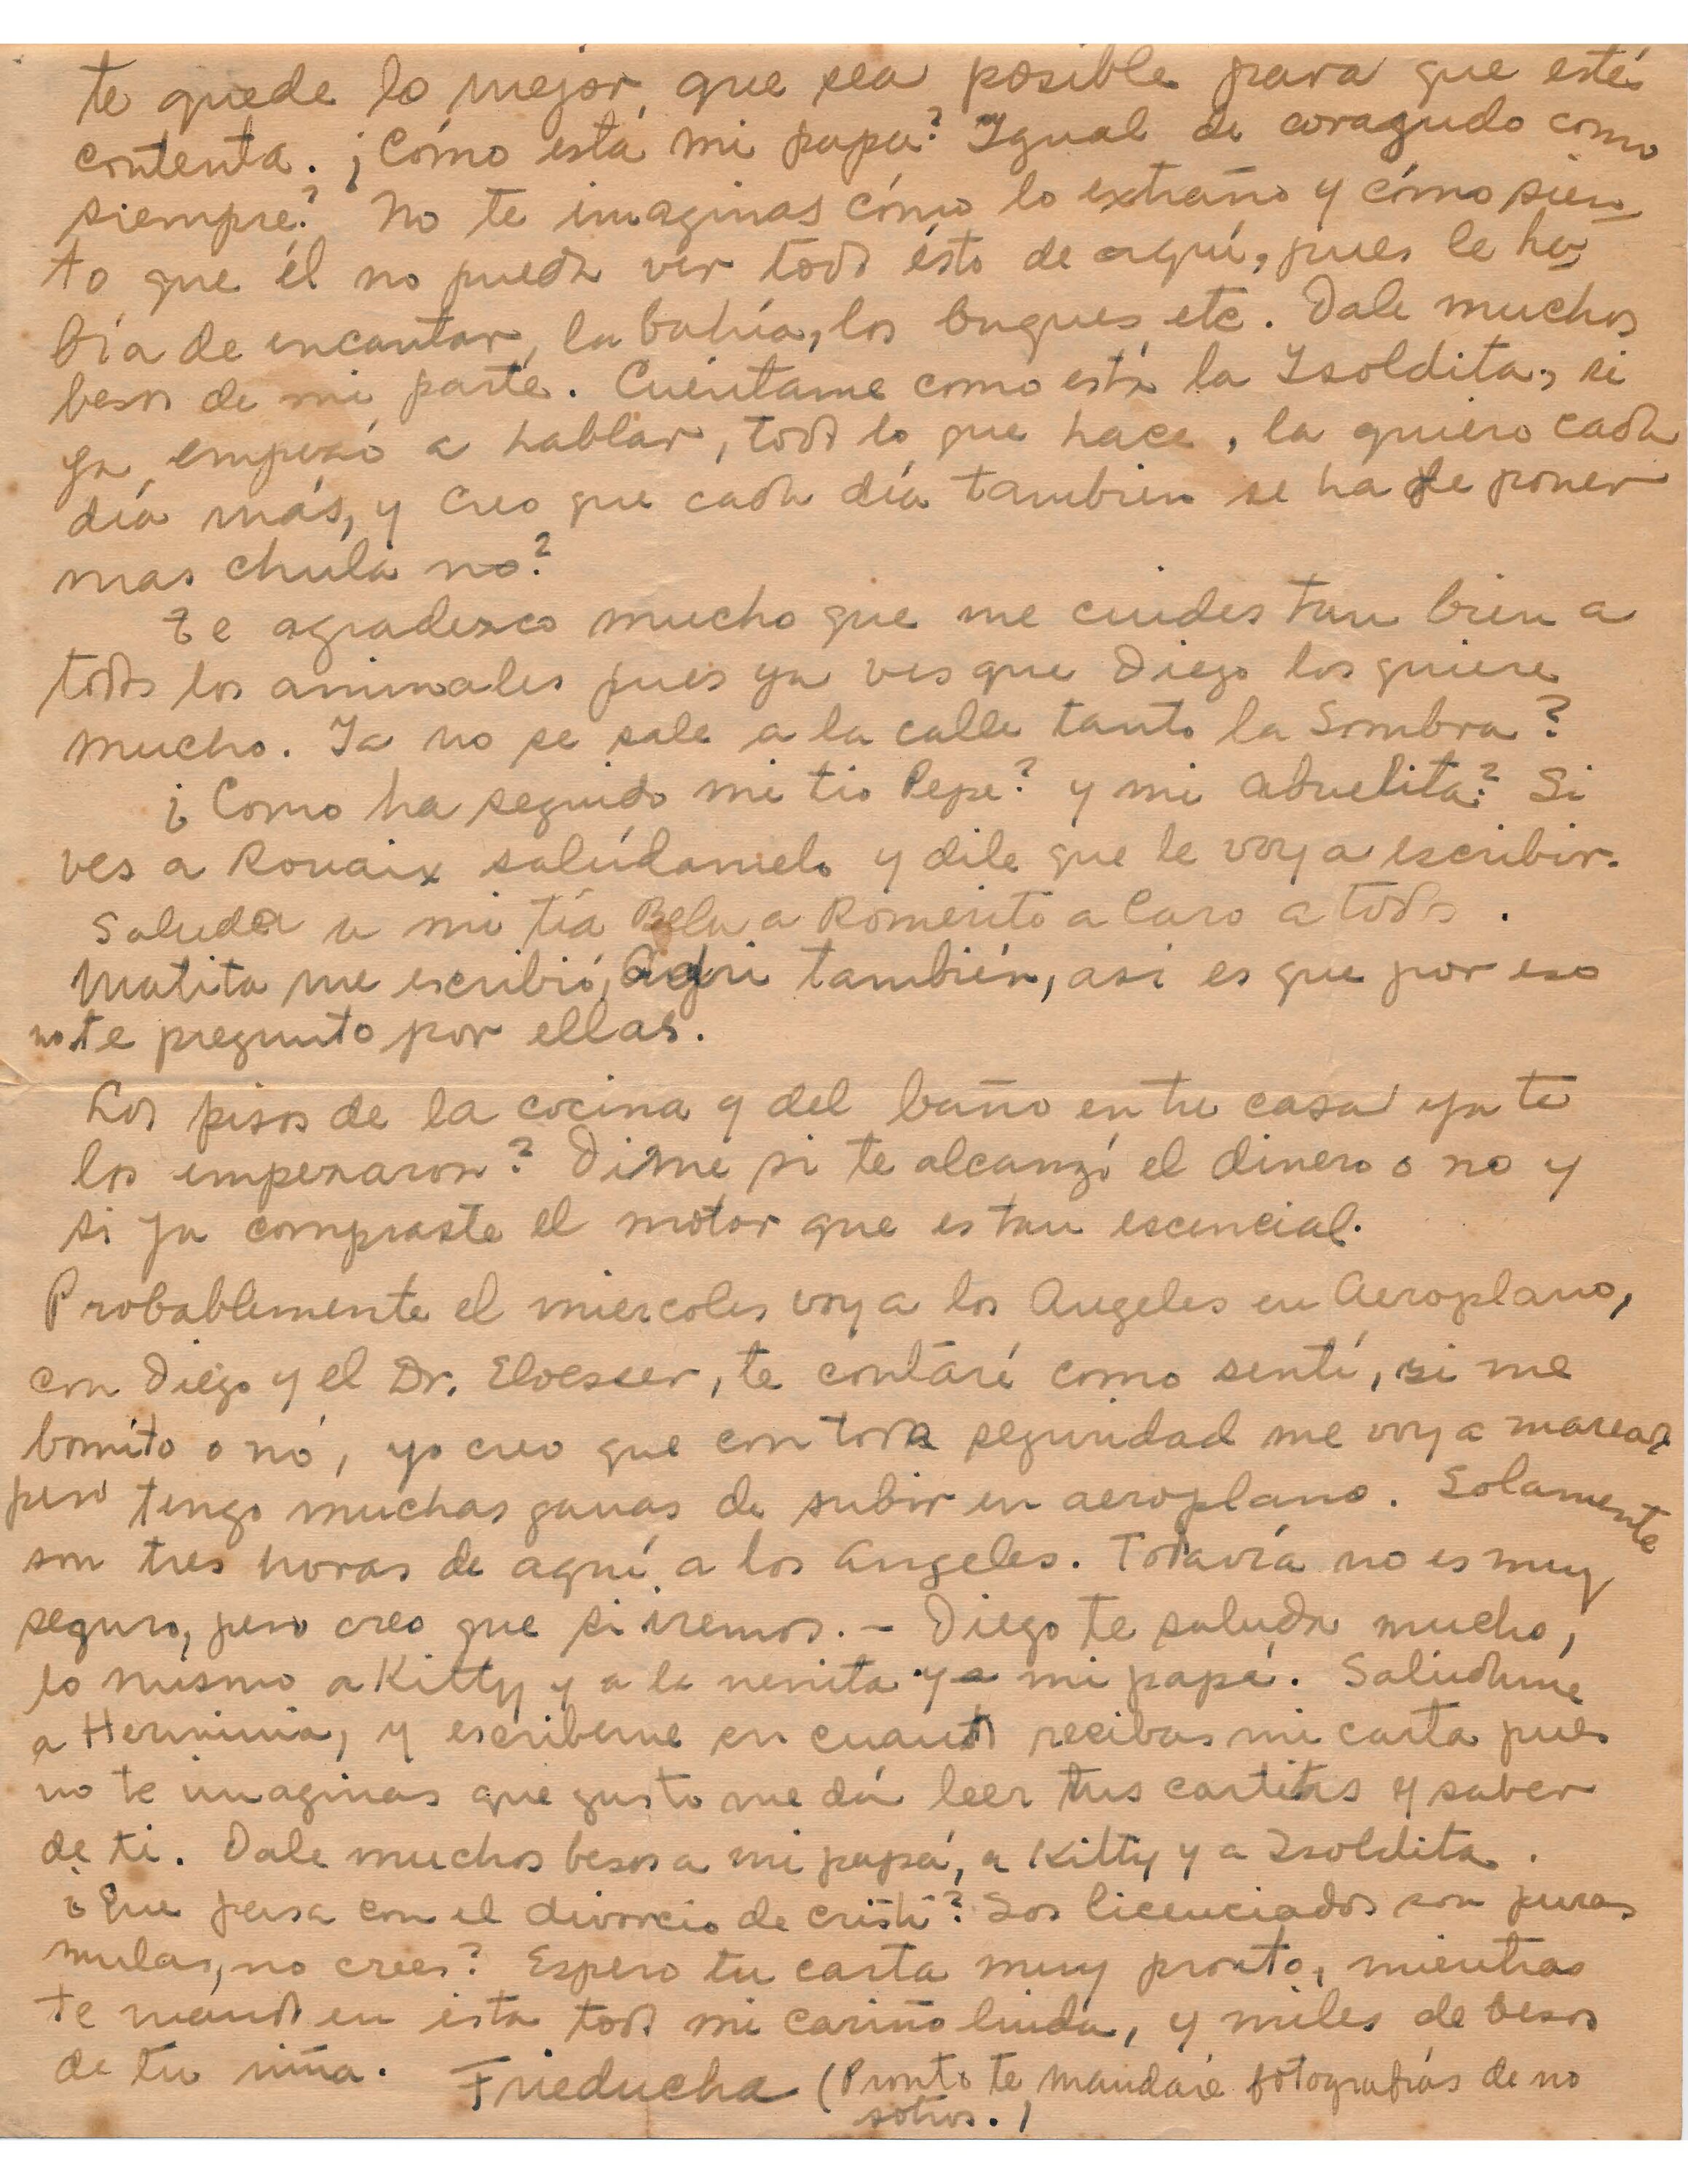 te quede lo mejor, que sea posible para que estés
contenta. ¿Cómo está mi papa? Igual de coragudo como
siempre? No te imaginas cómo lo extraño y cómo sien
to que él no pueda ver todo ésto de aquí, pues le ha
bía de encantar, la bahía, los buques etc. Dale muchos
besos de mi parte. Cuéntame como está la Isoldita, si
ya empezó a hablar, todo lo que hace, la quiero cada
día más, y creo que cada día tambien se ha de poner
mas chula no?
Te agradezco mucho que me cuides tan bien a
todos los animales pues ya ves que Diego los quiere
mucho. Ya no se sale a la calle tanto la Sombra?
¿Como ha seguido mi tio Pepe? y mi abuelita? Si
ves a Rouaix salúdamelo y dile que le voy a escribir.
Saluda a mi tía Bela a Romerito a Caro a todos.
Matita me escribió, Adri también, asi es que por eso
no te pregunto por ellas.
Los pisos de la cocina y del baño en tu casa ya te
los empezaron? Dime si te alcanzó el dinero o no y
si ya compraste el motor que es tan escencial.
Probablemente el miercoles voy a los Angeles en Aeroplano,
con Diego y el Dr. Eloesser, te contaré como sentí, si me
bomito o nó, yo creo que con toda seguridad me voy a marear
pero tengo muchas ganas de subir en aeroplano. Solamente
son tres horas de aquí a los Angeles. Todavía no es muy
seguro, pero creo que si iremos. – Diego te saluda mucho,
lo mismo a Kitty y a la nenita y a mi papá. Salúdame
a Herminia, y escribeme en cuanto recibas mi carta pues
no te imaginas que gusto me dá leer tus cartitas y saber
de ti. Dale muchos besos a mi papá, a Kitty y a Isoldita.
¿Que pasa con el divorcio de cristi? Los licenciados son puras
mulas, no crees? Espero tu carta muy pronto, mientras
te mando en ésta todo mi cariño linda, y miles de besos
de tu niña. Frieducha (Pronto te mandaré fotografías de no
sotros.)